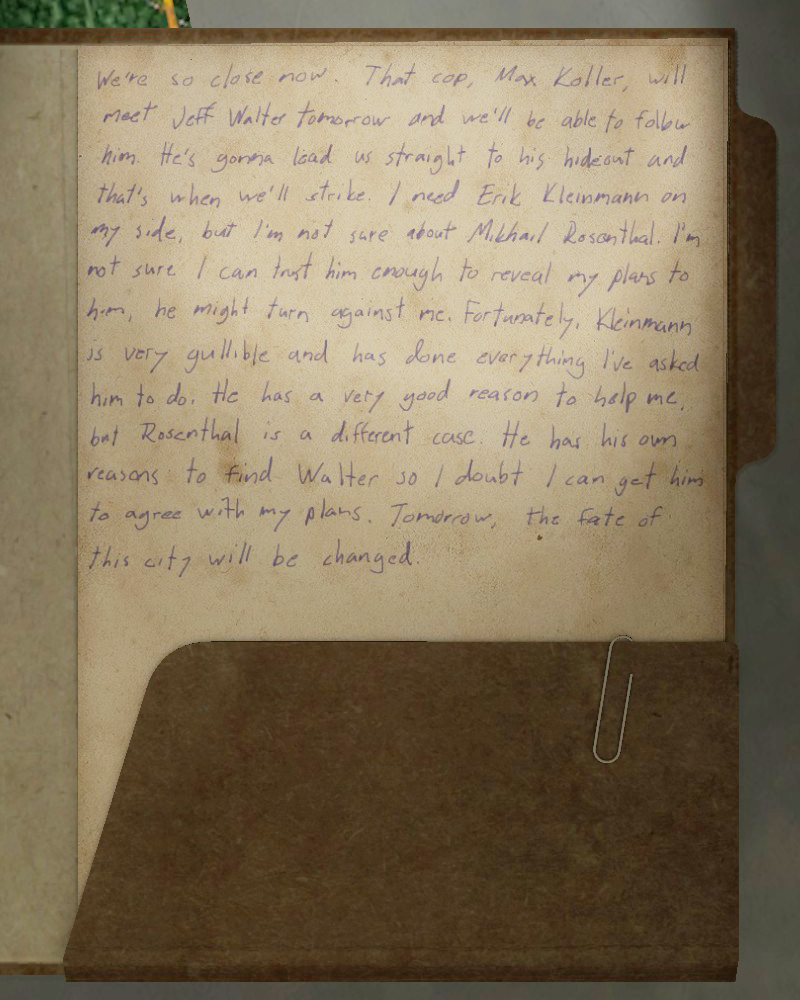 We're so close now. That cop, Max Koller, will
meet Jeff Walter tomorrow and we'll be able to follow
him. He's gonna lead us straight to his hideout and
that's when we'll strike. I need Erik Kleinmann on
my side, but I'm not sure about Mikhail Rosenthal. I'm
not sure I can trust him enough to reveal my plans to
him, he might turn against me. Fortunately, Kleinmann
is very gullible and has done everything I've asked
him to do. He has a very good reason to help me,
but Rosenthal is a different case. He has his own
reasons to find Walter so I doubt I can get him
to agree with my plans. Tomorrow, the fate of
this city will be changed.